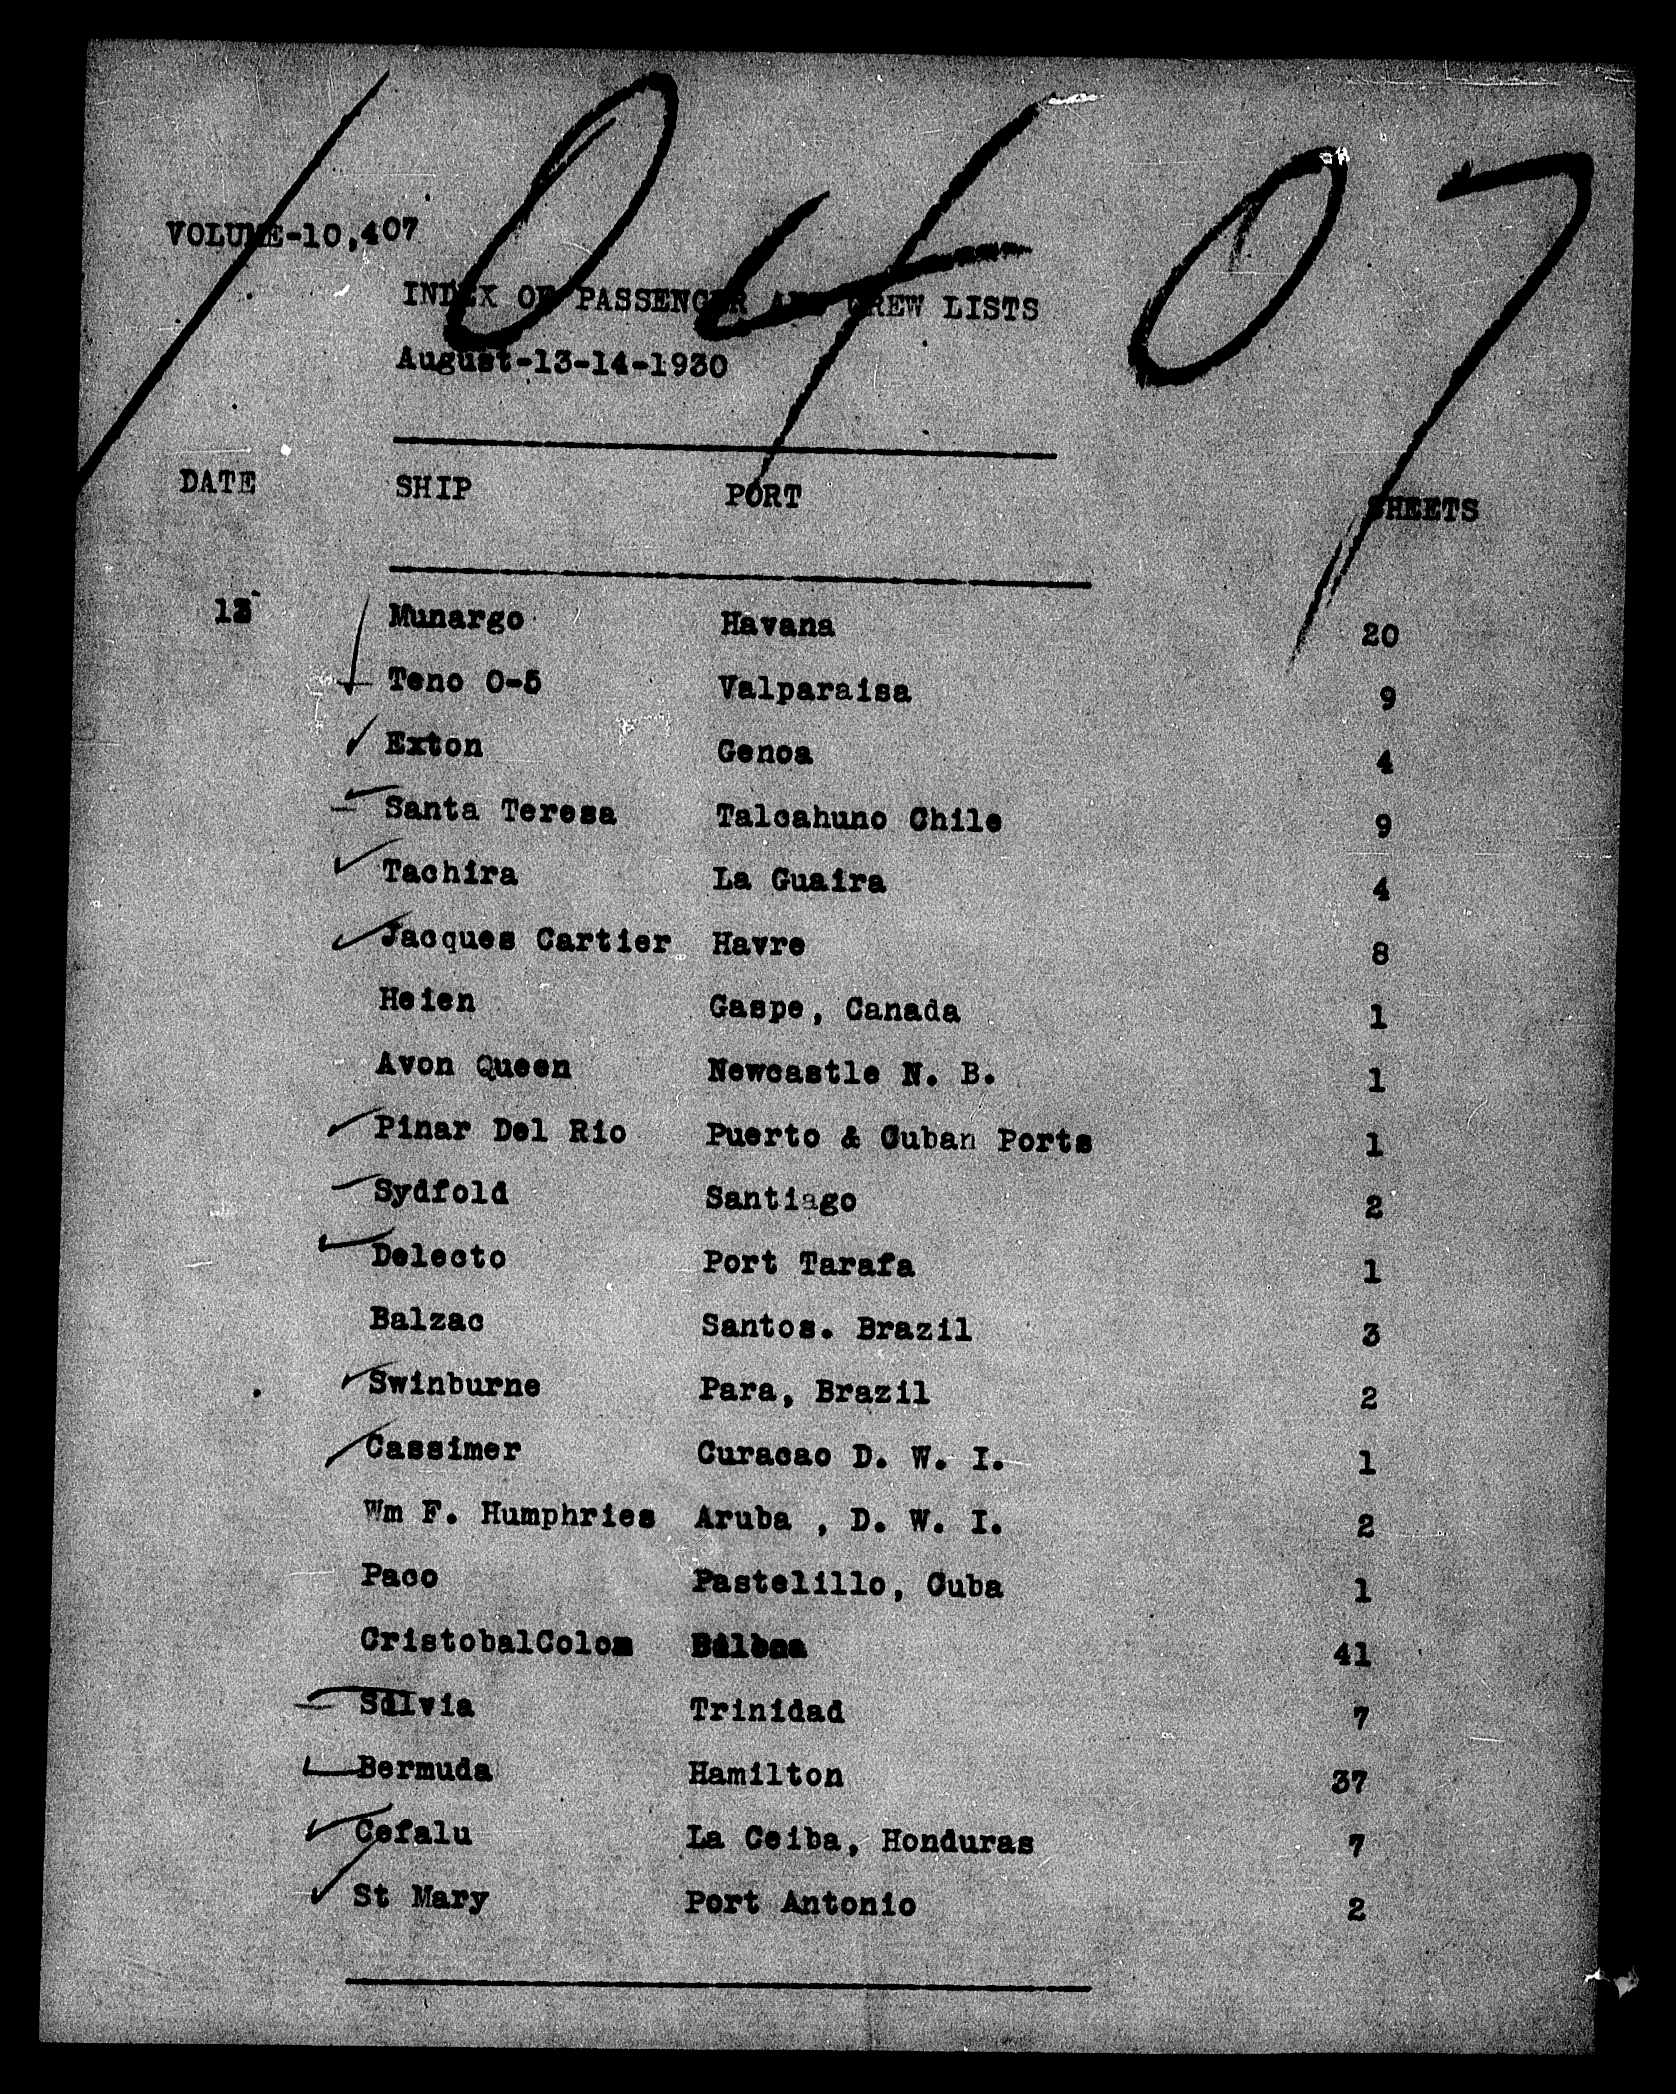 10407
VOLUME-10,407
INDEX OF PASSENGER AND CREW LISTS
August-13-14-1930
DATE SHIP PORT SHEETS
13 Munargo Havana 20
Teno 0-5 Valparaisa 9
Exton Genoa 4
Santa Teresa Talcahuno Chile 9
Tachira La Guaira 4
Jacques Cartier Havre 8
Heien Gaspe, Canada 1
Avon Queen Newcastle N. B. 1
Pinar Del Rio Puerto & Cuban Ports 1
Sydfold Santiago 2
Delecto Port Tarafa 1
Balzac Santos. Brazil 3
Swinburne Para, Brazil 2
Cassimer Curacao D. W. I. 1
Wm F. Humphries Aruba , D. W. I. 2
Paco Pastelillo, Cuba 1
CristobalColom 41
Silvia Trinidad 7
Bermuda Hamilton 37
Cefalu La Ceiba, Honduras 7
St Mary Port Antonio 2